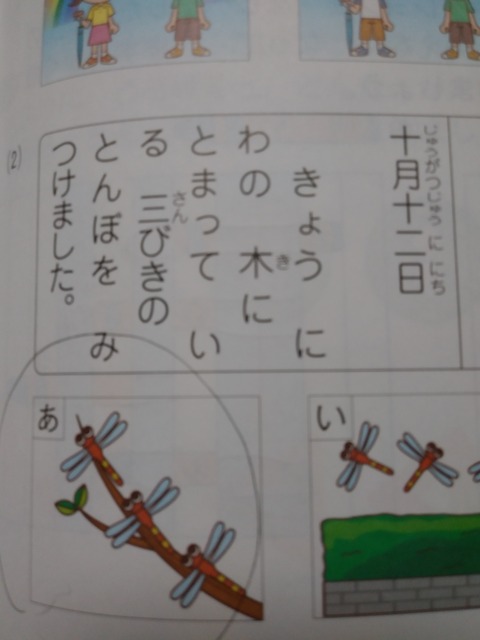 じゅうがつじゅうににち
十月十二日
きょう に
き
わの 木に
とまって い
さん
る 三びきの
とんぼを み
つけました。
(2)
あ
い